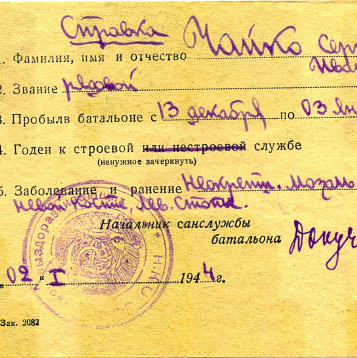 Справка
1. Фамилия, имя и отчество Чайко Сер
Ива
2. Звание рядовой
3. Пробыл в батальоне с 13 декабря по 03 Ян
4. Годен к строевой или нестроевой службе
(ненужное зачеркнуть)
5. Заболевание и ранение
кости, лев. стопы.
Начальник санслужбы
батальона Докуч
„02" I 1944г.
Зак. 2082